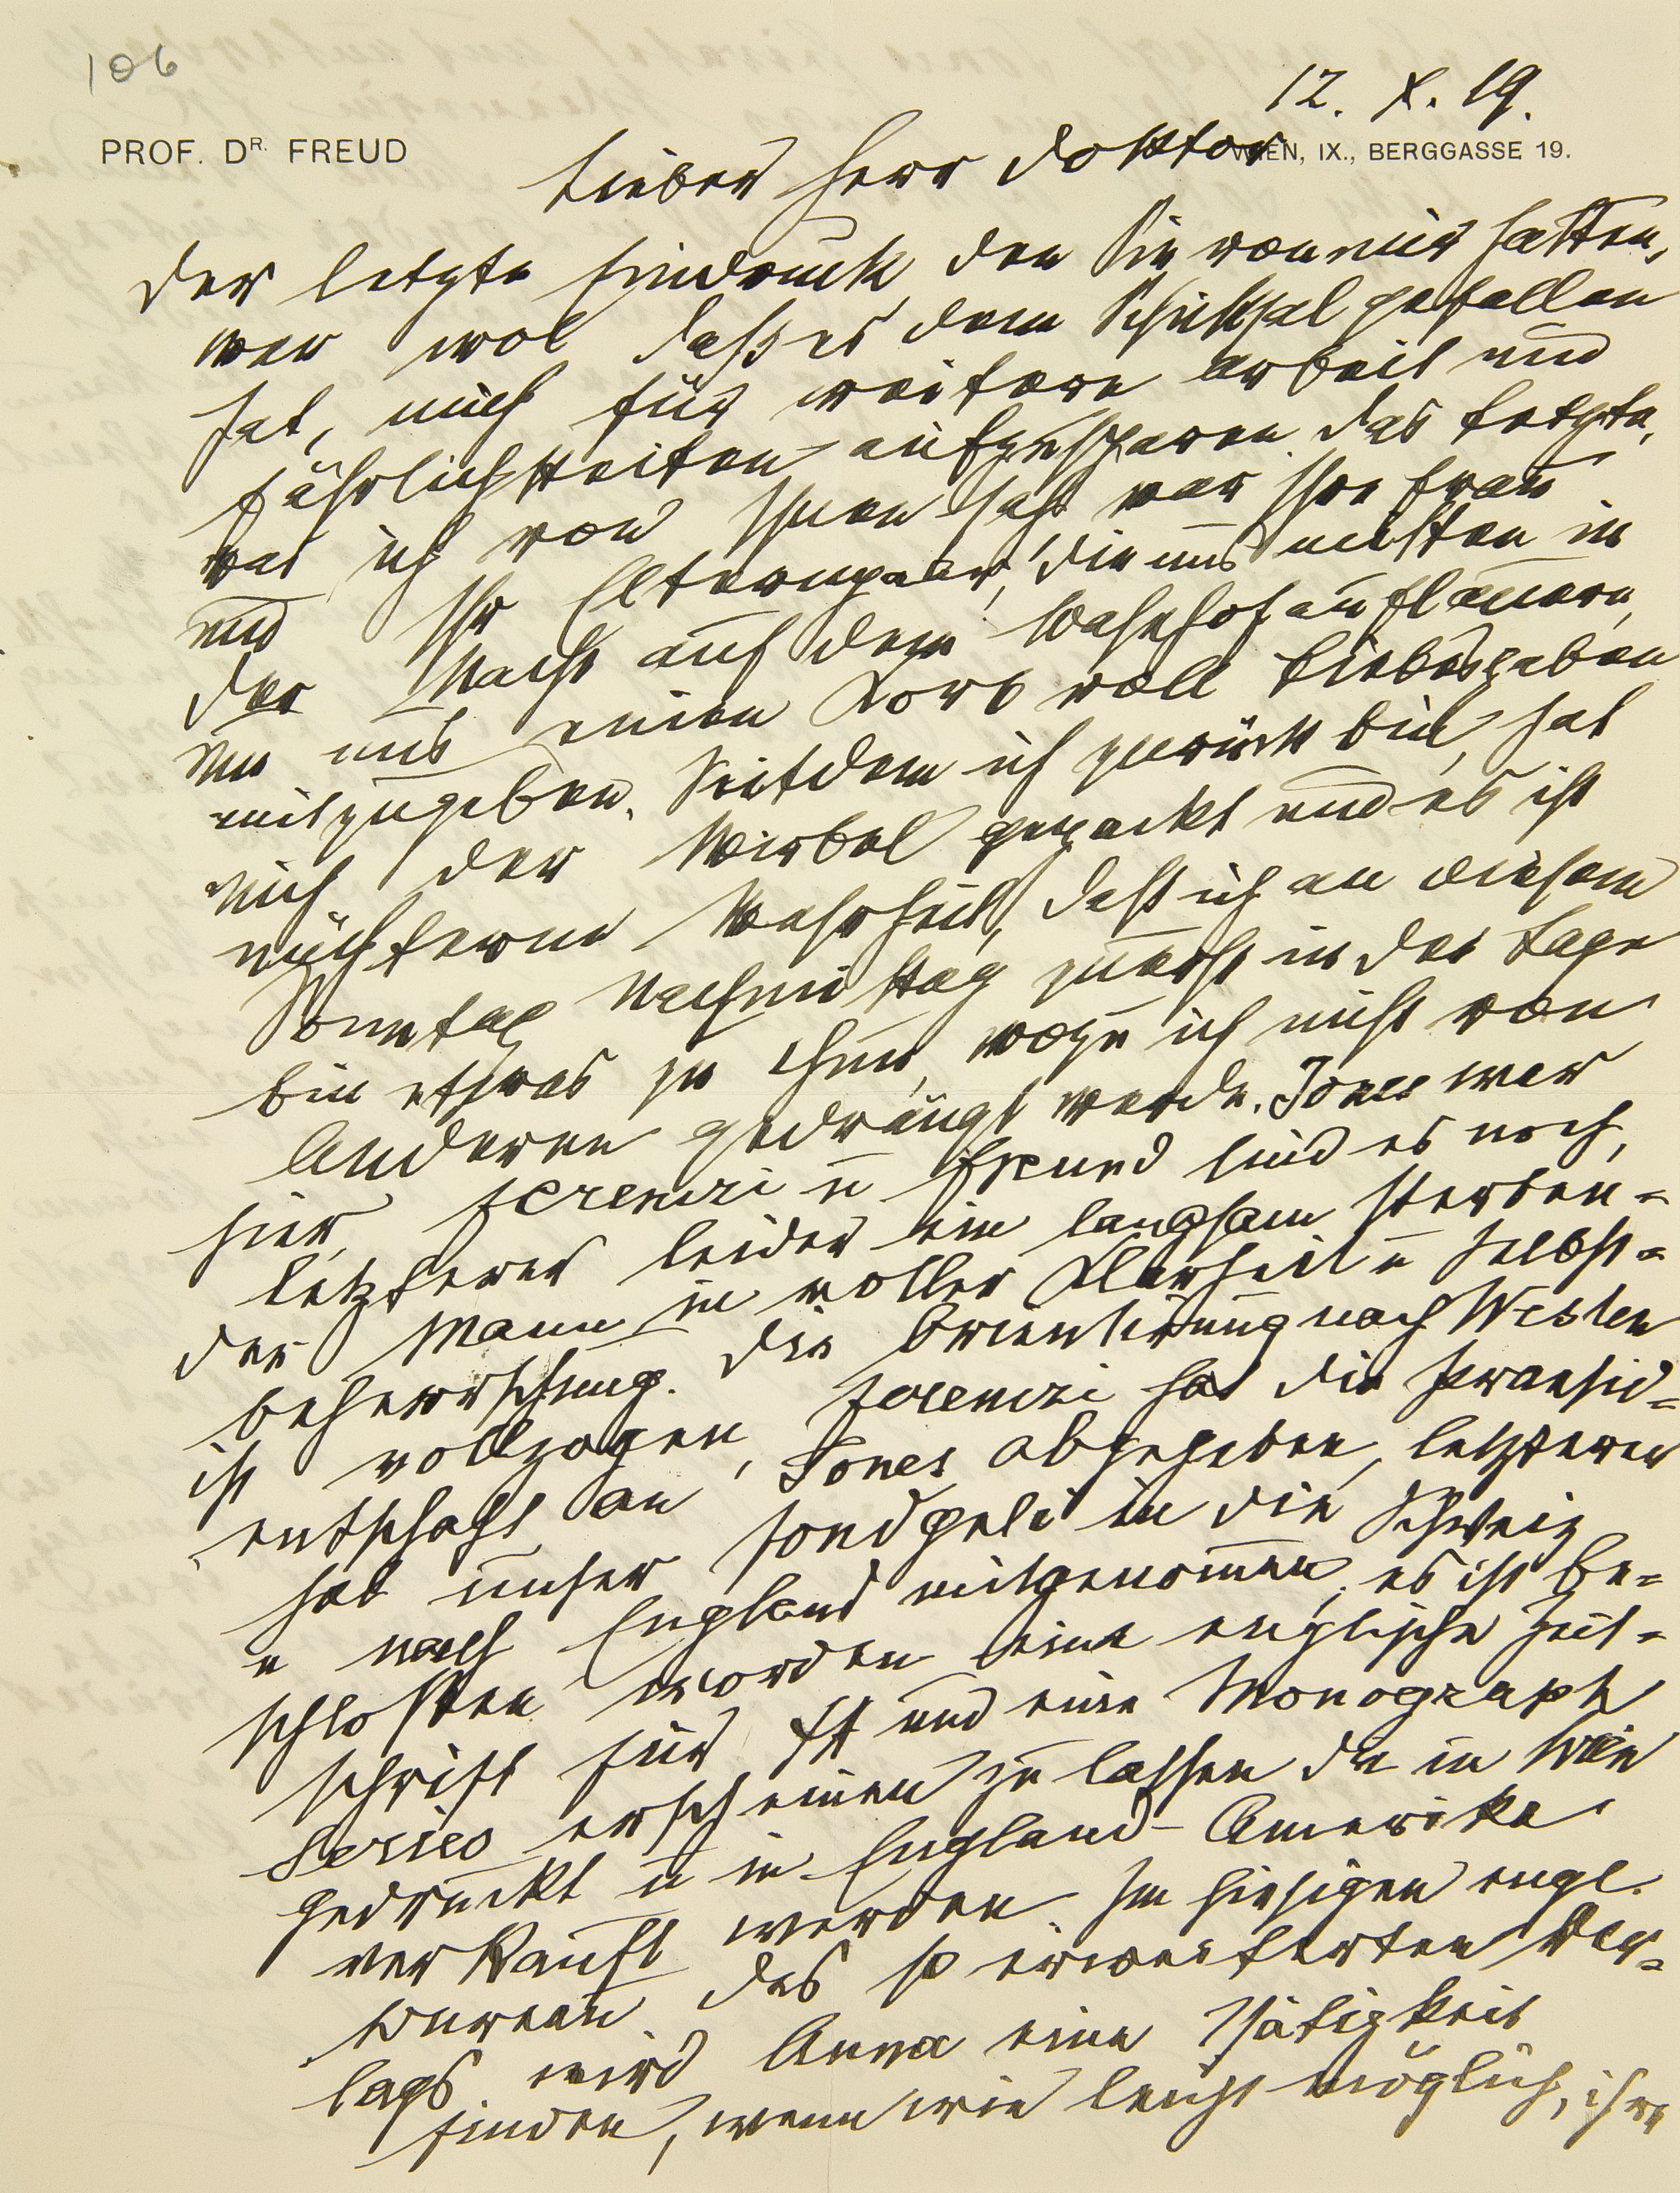 106
12. X. 19.
PROF. DR. FREUD
WIEN, IX., BERGGASSE 19.
Lieber Herr Doktor
Der letzte Eindruck, den Sie von mir hatten,
war wol dass es dem Schicksal gefallen
hat, mich für weitere Arbeit und
Fährlichkeiten aufzusparen. Das Letzte,
was ich von Ihnen sah war Ihre Frau
und Ihr Elternpaar, die uns mitten in
der Nacht auf dem Bahnhof auflauern,
um uns einen Korb voll Liebesgaben
mitzugeben. Seitdem ich zurück bin, hat
mich der Wirbel gepackt und es ist
nüchterne Wahrheit, dass ich an diesem
Sonntag Nachmittag zuerst in der Lage
bin etwas zu thun, wozu ich nicht von
Anderen gedrängt werde. Jones war
hier, Ferenczi u Freund sind es noch,
letzterer leider ein langsam sterben-
der Mann in voller Klarheit u Selbst-
beherrschung. Die Orientirung nach Westen
ist vollzogen, Ferenczi hat die Praesid-
entschaft an Jones abgegeben, letzterer
hat unser Fondgeld in die Schweiz
u nach England mitgenommen, es ist be-
schlossen worden eine englische Zeit-
schrift für ΨΑ und eine Monograph
Series erscheinen zu lassen die in Wien
gedruckt u in England-Amerika
verkauft werden. Im hiesigen engl.
Bureau des so erweiterten Ver-
lags wird Anna eine Thätigkeit
finden, wenn wie leicht möglich, ihre